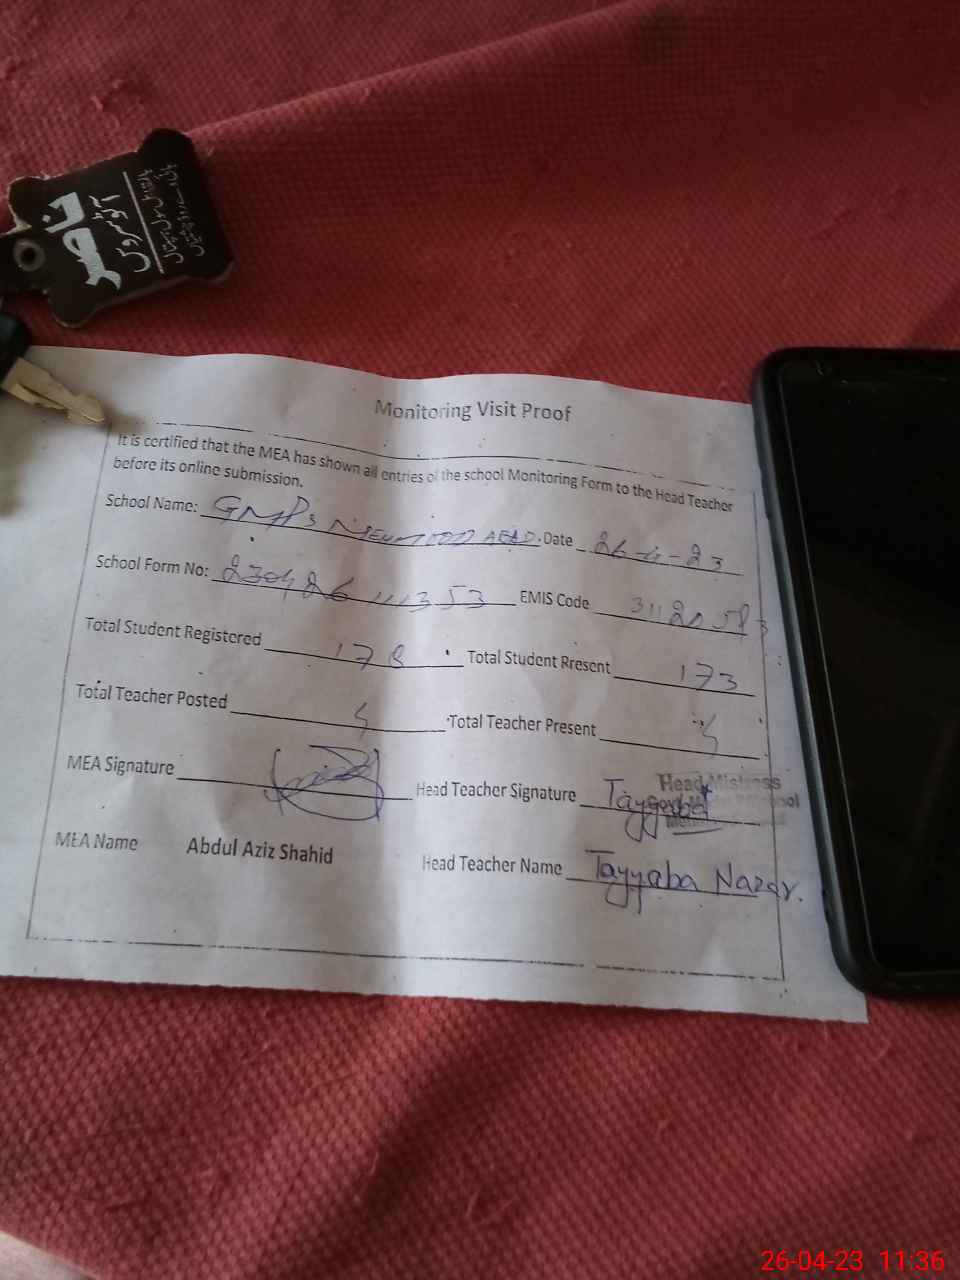 ناصر
آٹو سروس
Monitoring Visit Proof
It is certified that the MEA has shown all entries of the school Monitoring Form to the Head Teacher
before its online submission.
School Name: GMPS Date 26-4-23
School Form No: 230426111353 EMIS Code
Total Student Registered 178 Total Student Rresent 173
Total Teacher Posted Total Teacher Present
MEA Signature Head Teacher Signature Tayyaba
Head Mistress
MEA Name Abdul Aziz Shahid Head Teacher Name Tayyaba Nazar.
26-04-23 11:36